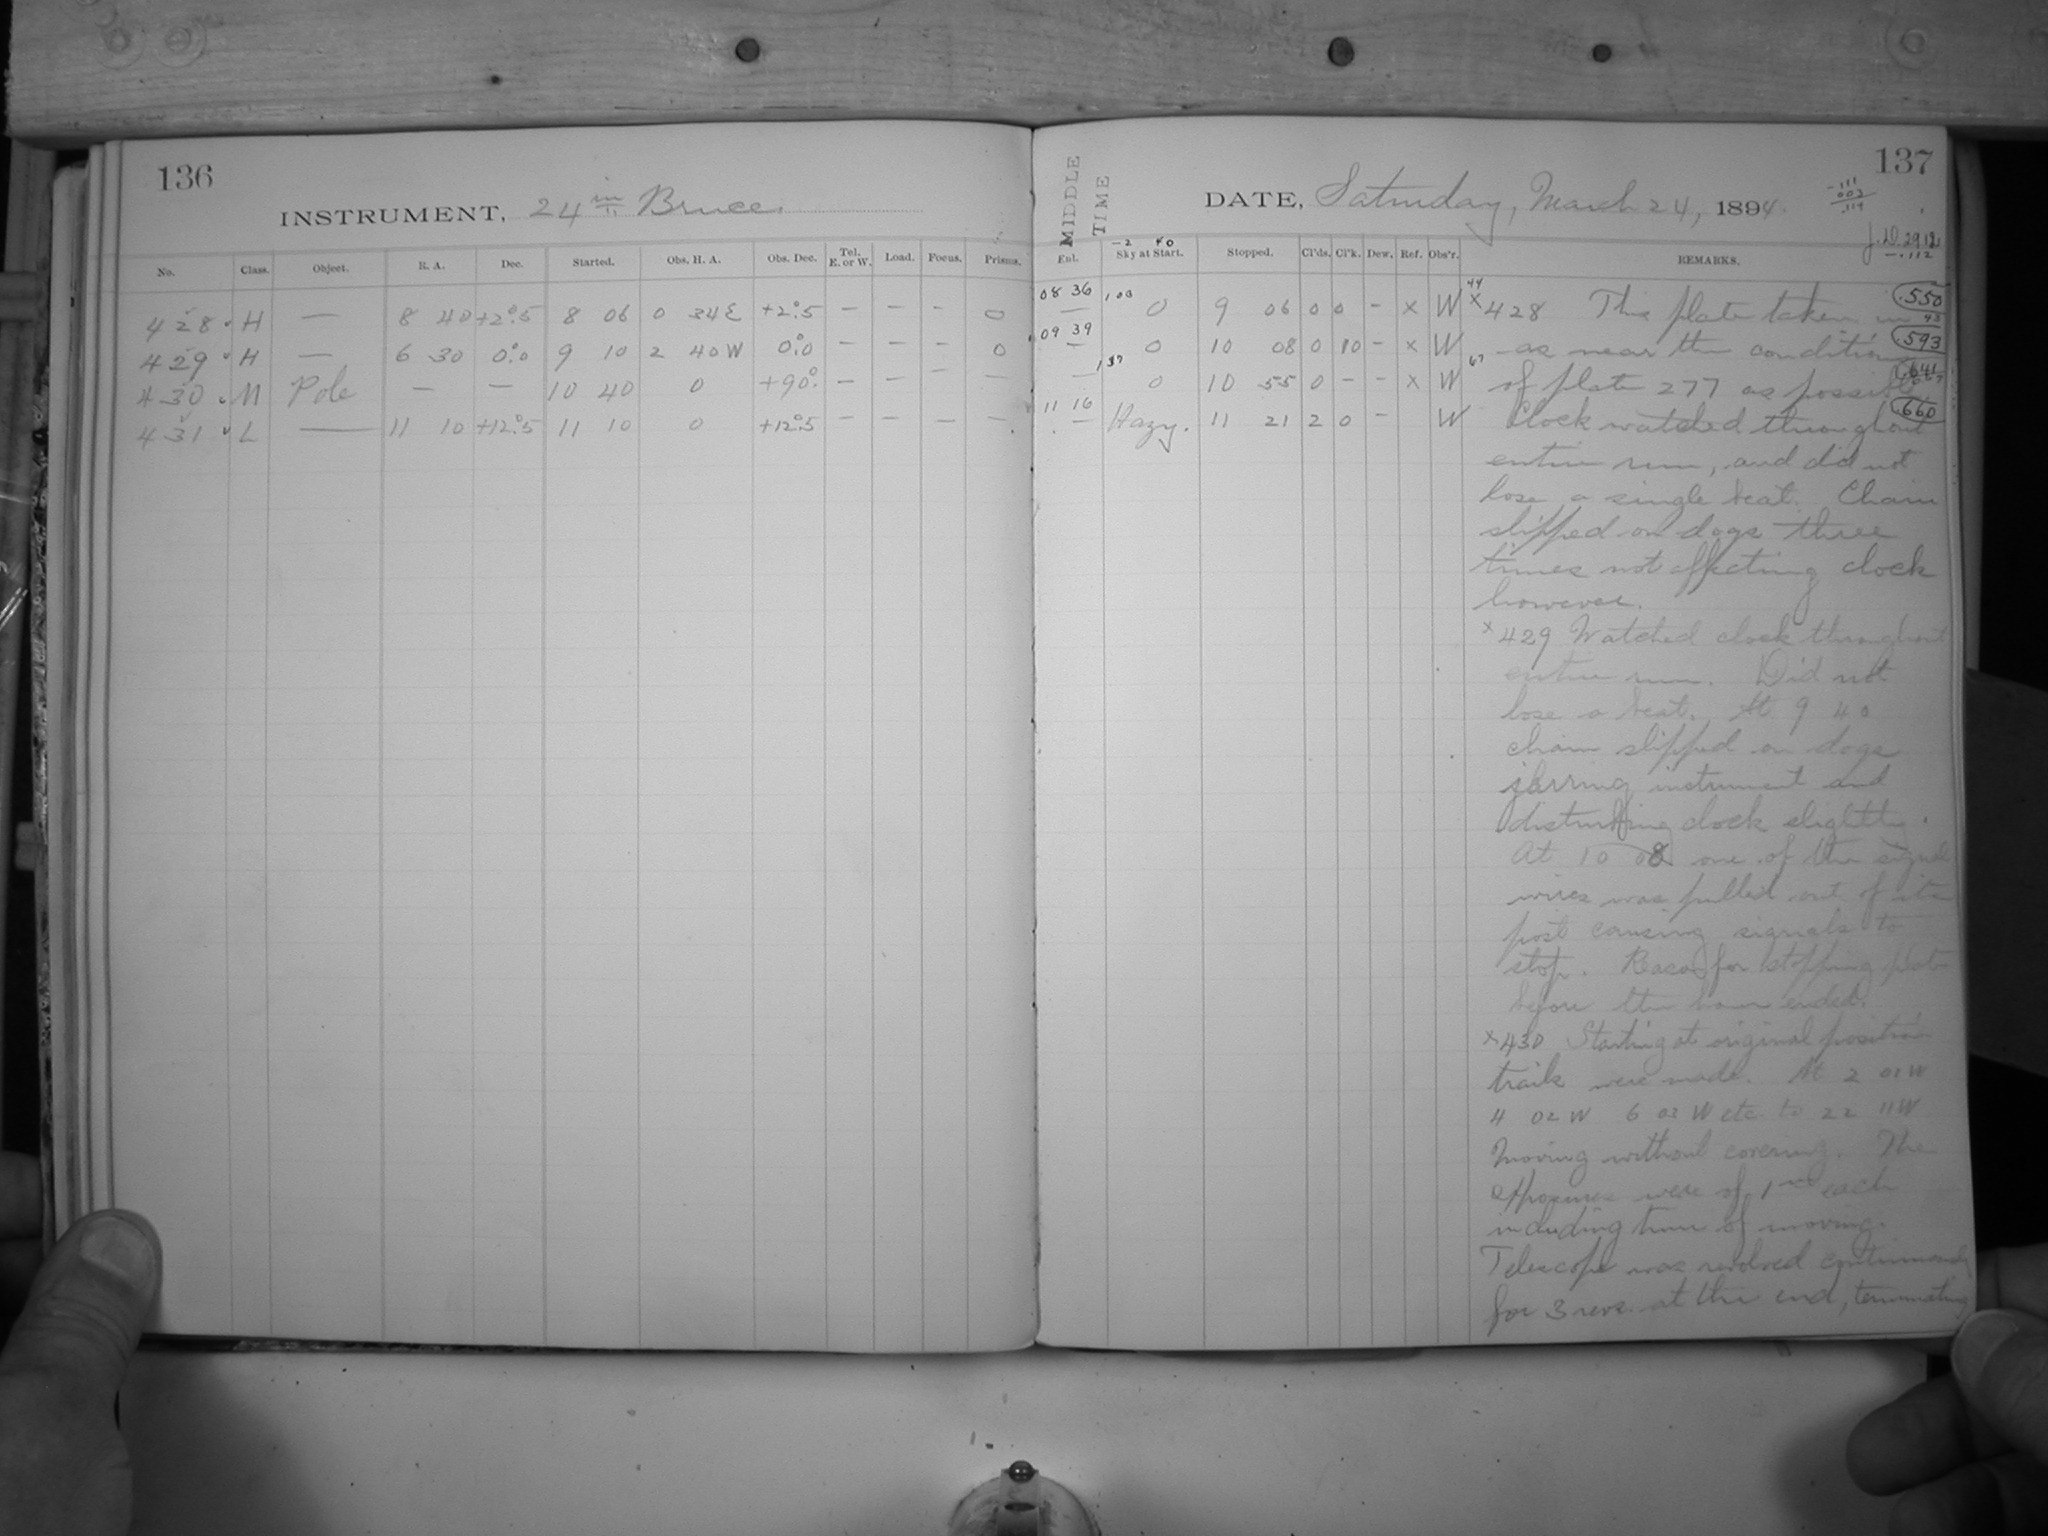 136
INSTRUMENT, 24 in Bruce.
No. Class. Object. R. A. Dec. Started. Obs. H. A. Obs. Dec. Tel. E. or W. Load. Focus. Prisms.
428 H — 8 40 +2°.5 8 06 0 34 E +2°.5 — — — 0
429 H — 6 30 0°.0 9 10 2 40 W 0°.0 — — — 0
430 M Pole — — 10 40 0 +90°. — — — —
431 L — 11 10 +12°.5 11 10 0 +12°.5 — — — —
137
MIDDLE TIME
DATE, Saturday, March 24, 1894.
-.111
002
.114
J.D. 2912
-.112
-2 40
Ent. Sky at Start. Stopped. Cl'ds. Cl'k. Dew. Ref. Obs'r. REMARKS.
08 36 — 0 9 06 0 0 — x W
09 39 — 0 10 08 0 10 — x W
— 0 10 55 0 — — x W
11 16 — Hazy. 11 21 2 0 — W
.550
.593
.641
.660
x428 This plate taken in
as near the condition
of plate 277 as possible
Clock watched throughout
entire run, and did not
lose a single beat. Chain
slipped on dogs three
times not affecting clock
however.
x429 Watched clock throughout
entire run. Did not
lose a beat. At 9 40
chain slipped on dogs
jarring instrument and
disturbing clock slightly.
At 10 08 one of the signal
wires was pulled out of its
post causing signals to
stop. Reason for stopping plate
before the hour ended.
x430 Starting at original position
trails were made. At 2 01 W
4 02 W 6 03 W etc to 22 11 W
Moving without covering. The
exposures were of 1 each
including time of moving.
Telescope was revolved continuously
for 3 revs. at the end, terminating